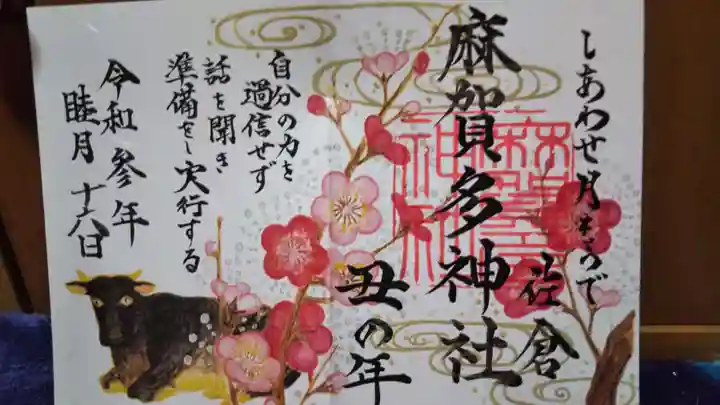 しあわせ月まうで
佐倉
麻賀多神社
丑の年
自分の力を
過信せず
話を聞き
準備をし実行する
令和参年
睦月十六日